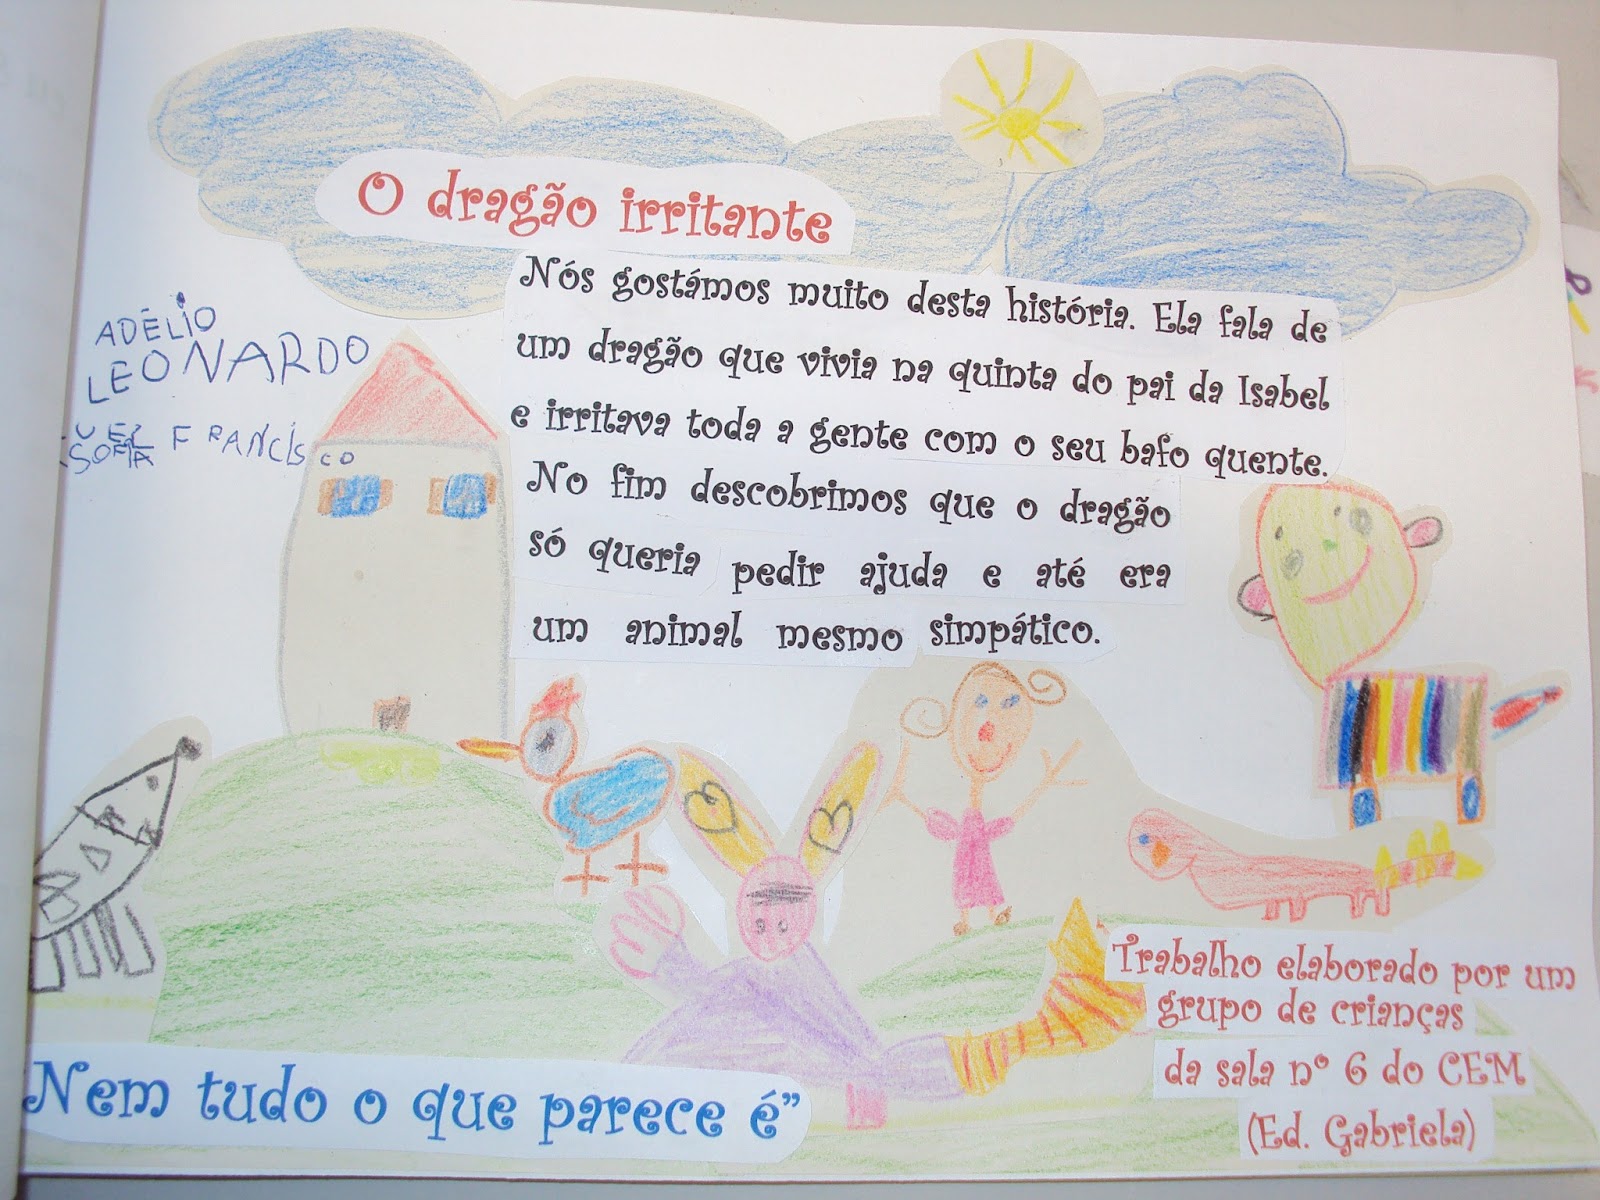 O dragão irritante
Nós gostámos muito desta história. Ela fala de
um dragão que vivia na quinta do pai da Isabel
e irritava toda a gente com o seu bafo quente.
No fim descobrimos que o dragão
só queria pedir ajuda e até era
um animal mesmo simpático.
ADÉLIO
LEONARDO
FRANCISCO
SOFIA
Trabalho elaborado por um
grupo de crianças
da sala nº 6 do CEM
(Ed. Gabriela)
Nem tudo o que parece é”